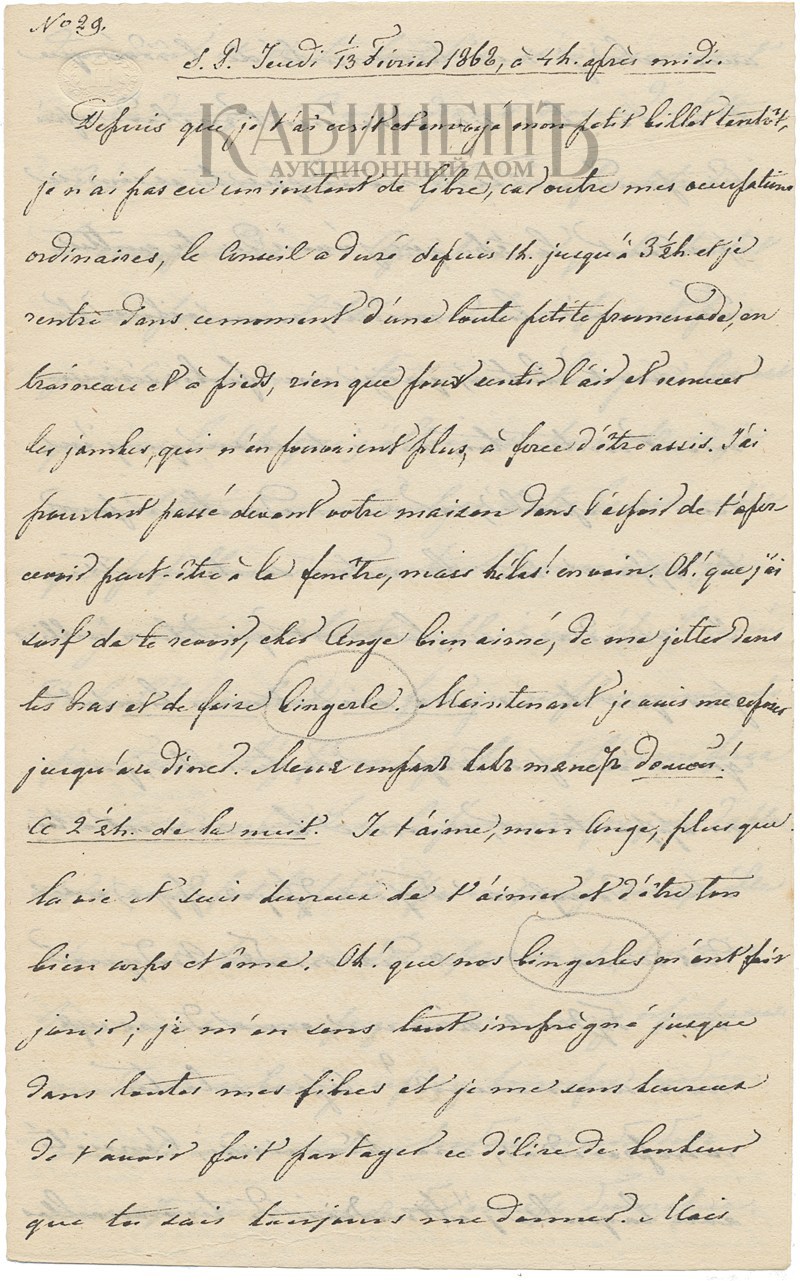 No 29.
S. P. Jeudi 1/13 Février 1868, à 4 h. après midi.
КАБИНЕТЪ
АУКЦИОННЫЙ ДОМ
Depuis que je t'ai écrit et envoyé mon petit billet tantôt,
je n'ai pas eu un instant de libre, car outre mes occupations
ordinaires, le Conseil a duré depuis 1 h. jusqu'à 3 ½ h. et je
rentre dans ce moment d'une toute petite promenade, en
traineau et à pieds, rien que pour sentir l'air et remuer
les jambes, qui n'en pouvaient plus, à force d'être assis. J'ai
pourtant passé devant votre maison dans l'espoir de t'aper-
cevoir peut-être à la fenêtre, mais hélas! en vain. Oh! que j'ai
soif de te revoir, cher Ange bien aimé, de me jetter dans
tes bras et de faire bingerle. Maintenant je vais me reposer
jusqu'au diner.
Ce 2 ½ h. de la nuit. Je t'aime, mon Ange, plus que
la vie et suis heureux de t'aimer et d'être ton
bien corps et âme. Oh! que nos bingerles m'ont fait
jouir; je m'en sens tout imprégné jusque
dans toutes mes fibres et je me sens heureux
de t'avoir fait partager ce délire de bonheur
que tu sais toujours me donner. Mais